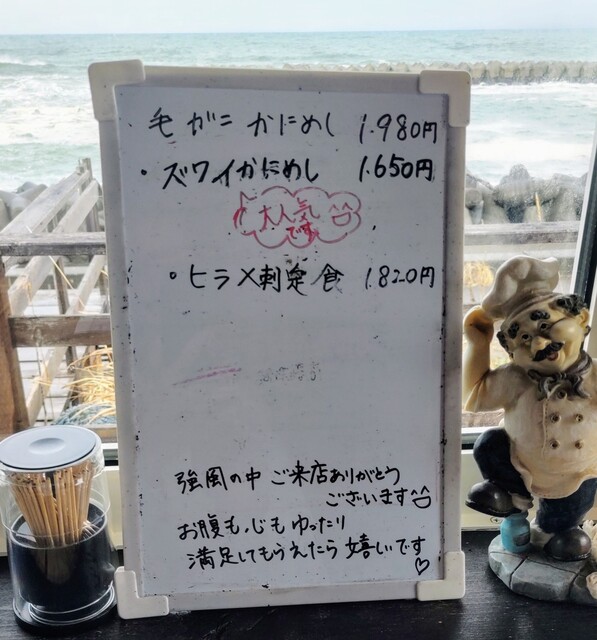 毛ガニかにめし 1.980円
・ズワイかにめし 1.650円
大人気
です
・ヒラメ刺定食 1.820円
強風の中 ご来店ありがとう
ございます
お腹も心もゆったり
満足してもらえたら嬉しいです♡